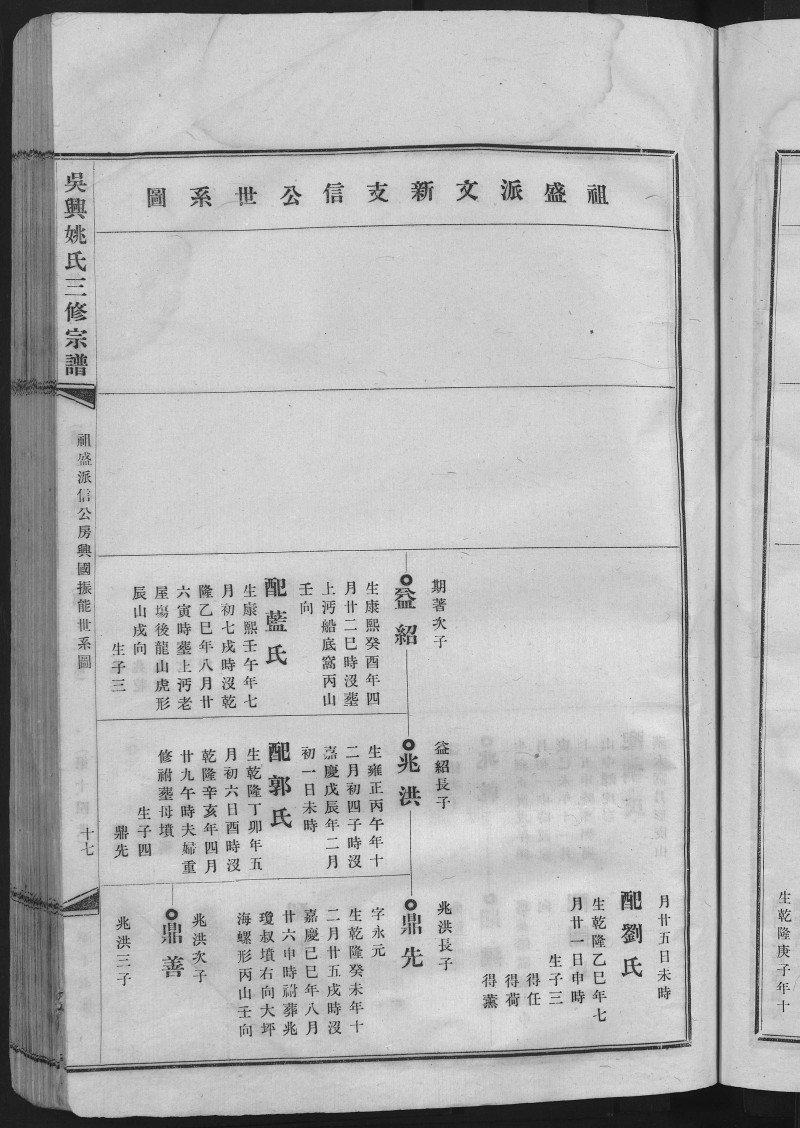 祖盛派文新支信公世系圖
期著次子
益紹
生康熙癸酉年四
月廿二巳時沒塟
上沔船底窩丙山
壬向
配藍氏
生康熙壬午年七
月初七戌時沒乾
隆乙巳年八月廿
六寅時塟上沔老
屋塲後龍山虎形
辰山戌向
生子三
益紹長子
兆洪
生雍正丙午年十
二月初四子時沒
嘉慶戊辰年二月
初一日未時
配郭氏
生乾隆丁卯年五
月初六日酉時沒
乾隆辛亥年四月
廿九午時夫婦重
修祔塟母墳
生子四
鼎先
月廿五日未時
配劉氏
生乾隆乙巳年七
月廿一日申時
生子三
得任
得荷
得薰
兆洪長子
鼎先
字永元
生乾隆癸未年十
二月廿五戌時沒
嘉慶己巳年八月
廿六申時祔葬兆
瓊叔墳右向大坪
海螺形丙山壬向
兆洪次子
鼎善
兆洪三子
吳興姚氏三修宗譜
祖盛派信公房興國振能世系圖
十七
生乾隆庚子年十